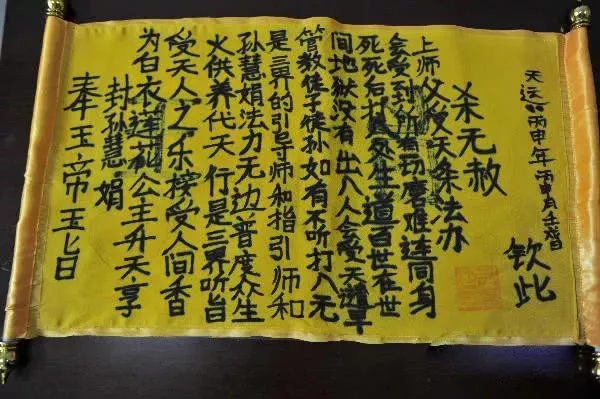 奉玉帝玉旨
封孙慧娟
为白衣莲花公主升天享
受天人之乐接受人间香
火供养代天行是三界听旨
孙慧娟法力无边普度众生
是三界的引导师和指引师和
管教徒子徒孙如有不听打入无
间地狱没有出入人会受天
死死后打入畜生道百世在世
会受到所有切磨难连同身
上师父受天条法办
杀无赦
钦此
天运丙申年丙申月